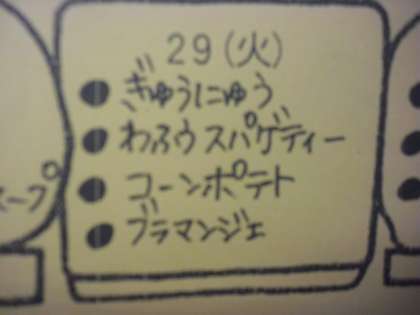 29(火)
● ぎゅうにゅう
● わふうスパゲティー
● コーンポテト
● ブラマンジェ
スープ